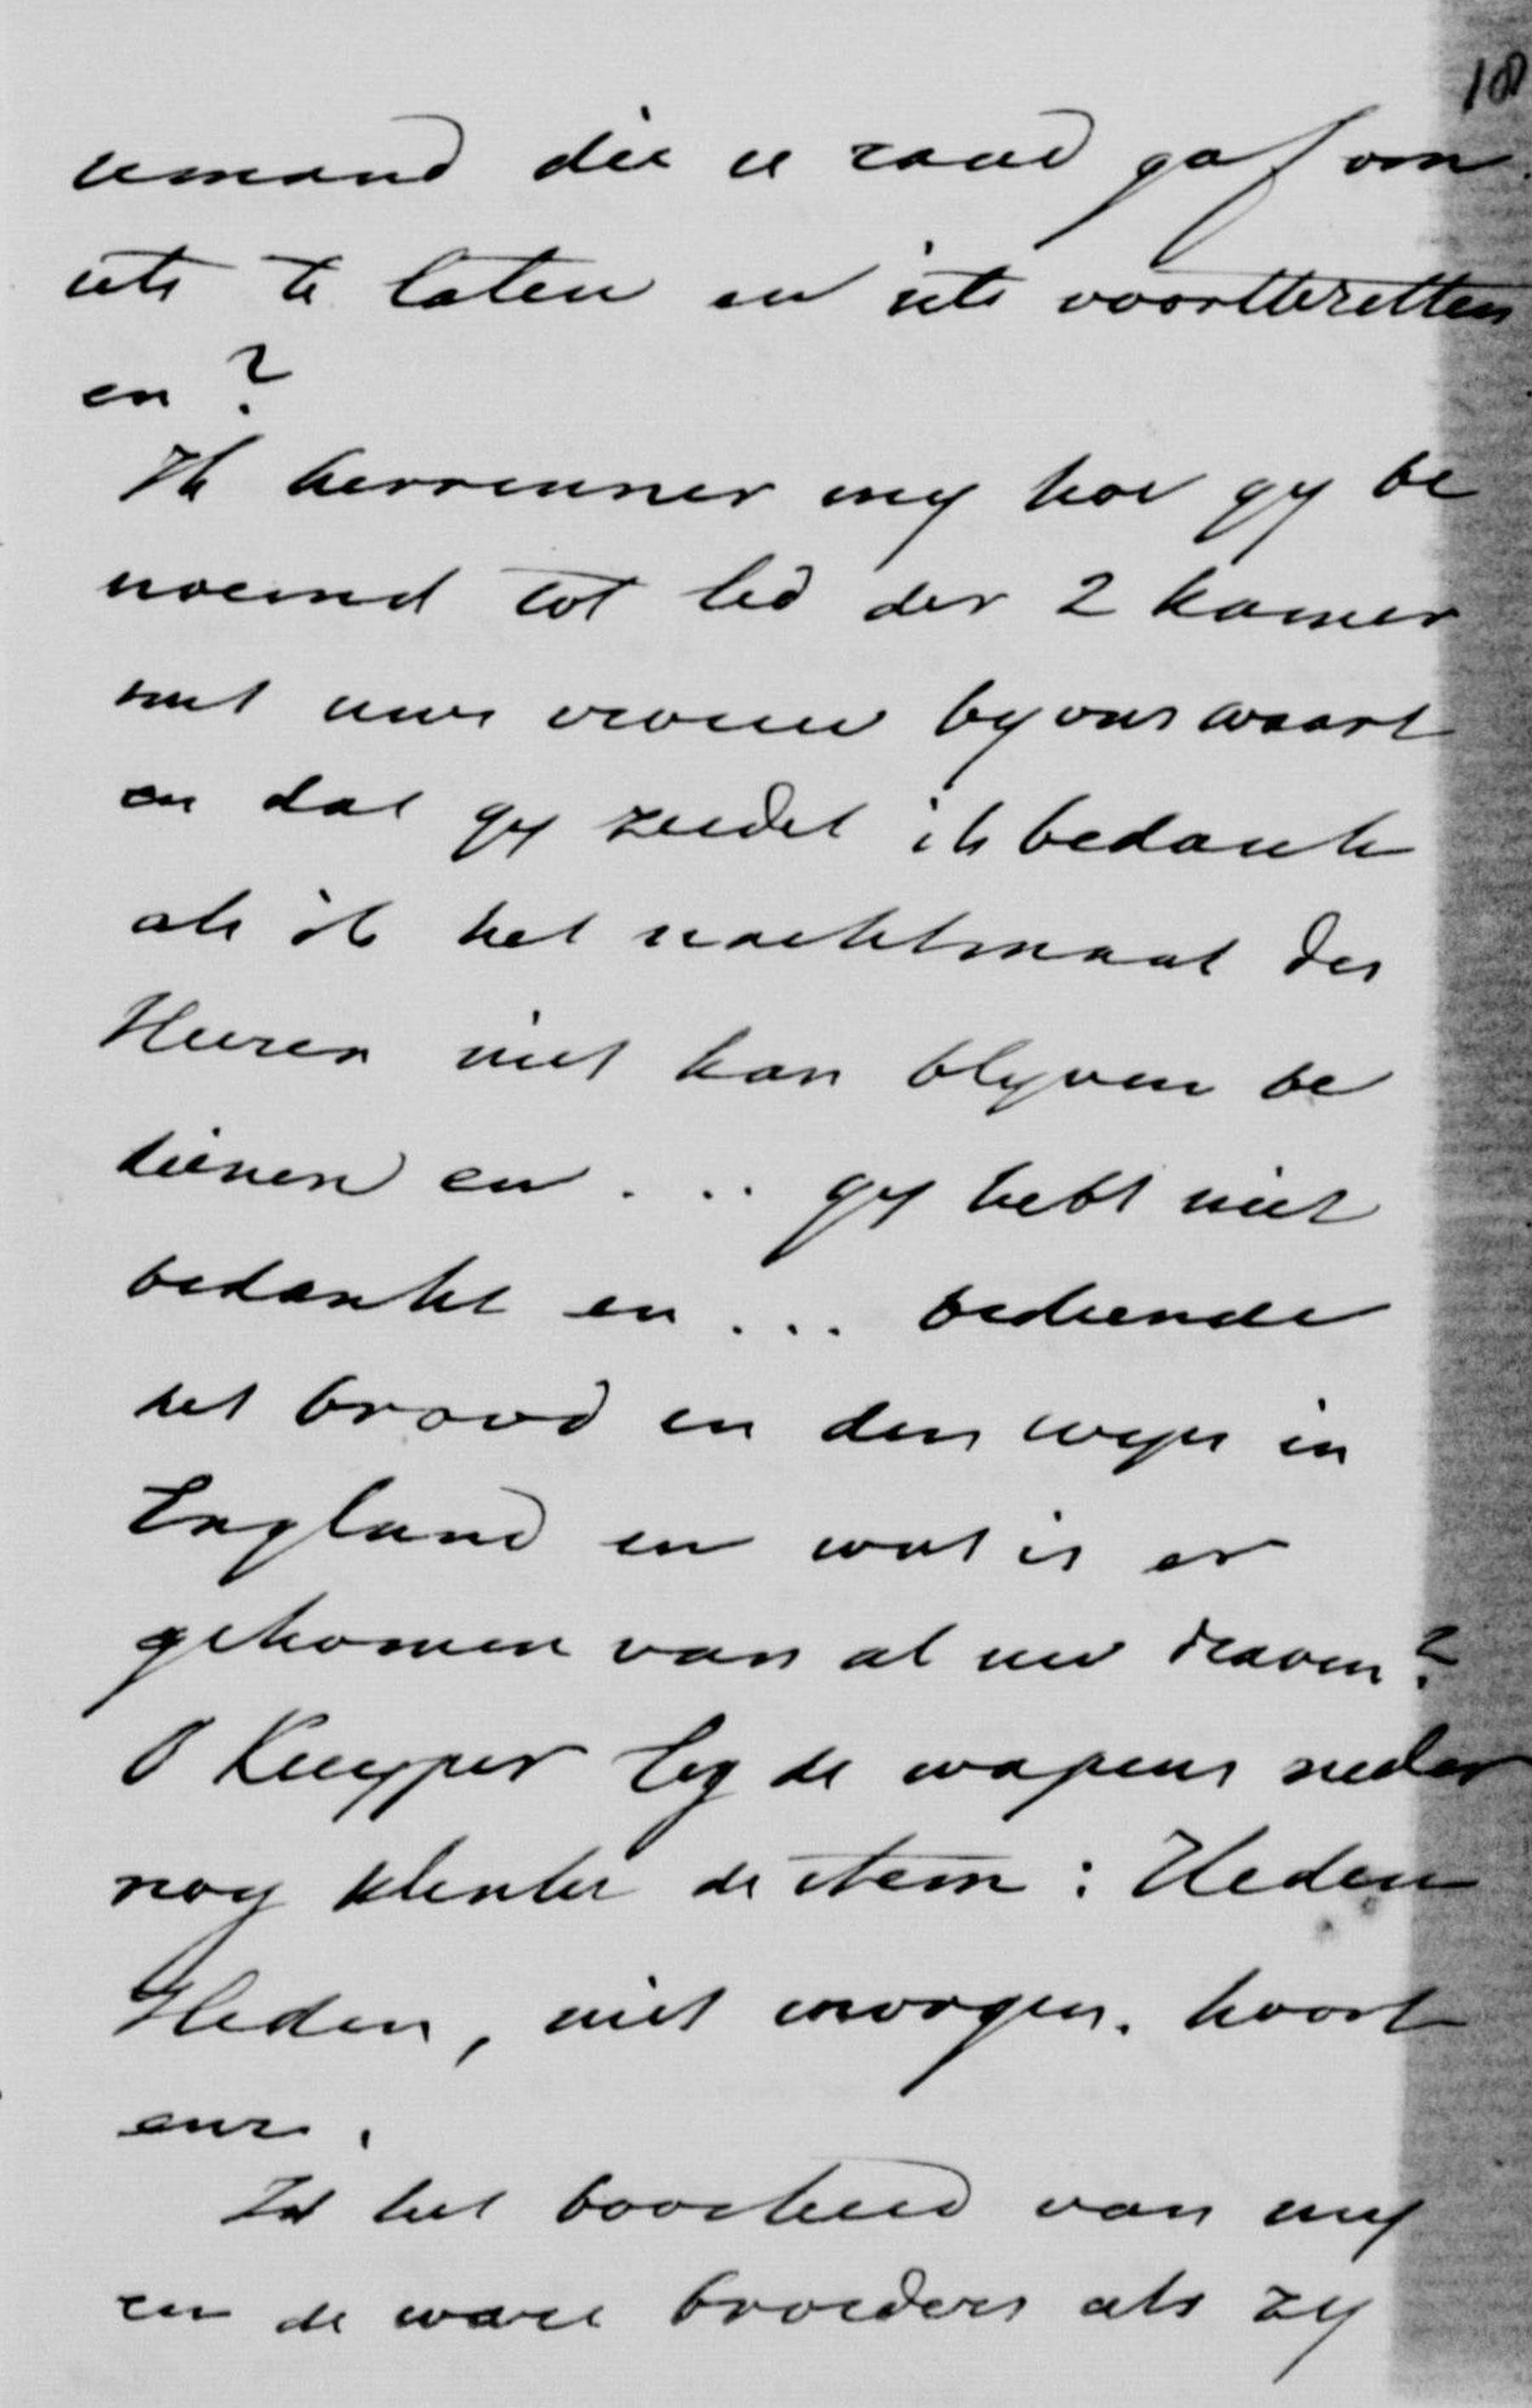 18
iemand die u raad gaf om
iets te laten en iets voorttezetten
en?
Ik herrinner my hoe gy be
noemd tot lid der 2 kamer
met uwe vrouw by ons waart
en dat gy zeidet ik bedank
als ik het nachtmaal des
Heeren niet kan blyven be
dienen en... gy hebt niet
bedankt en... bediende
het brood en den wyn in
England en wat is er
gekomen van al uw draven?
O Kuyper leg de wapens neder
nog klinkt de stem: Heden
Heden, niet morgen. hoort
enz.
Is het boosheid van my
en de ware broeders als zy